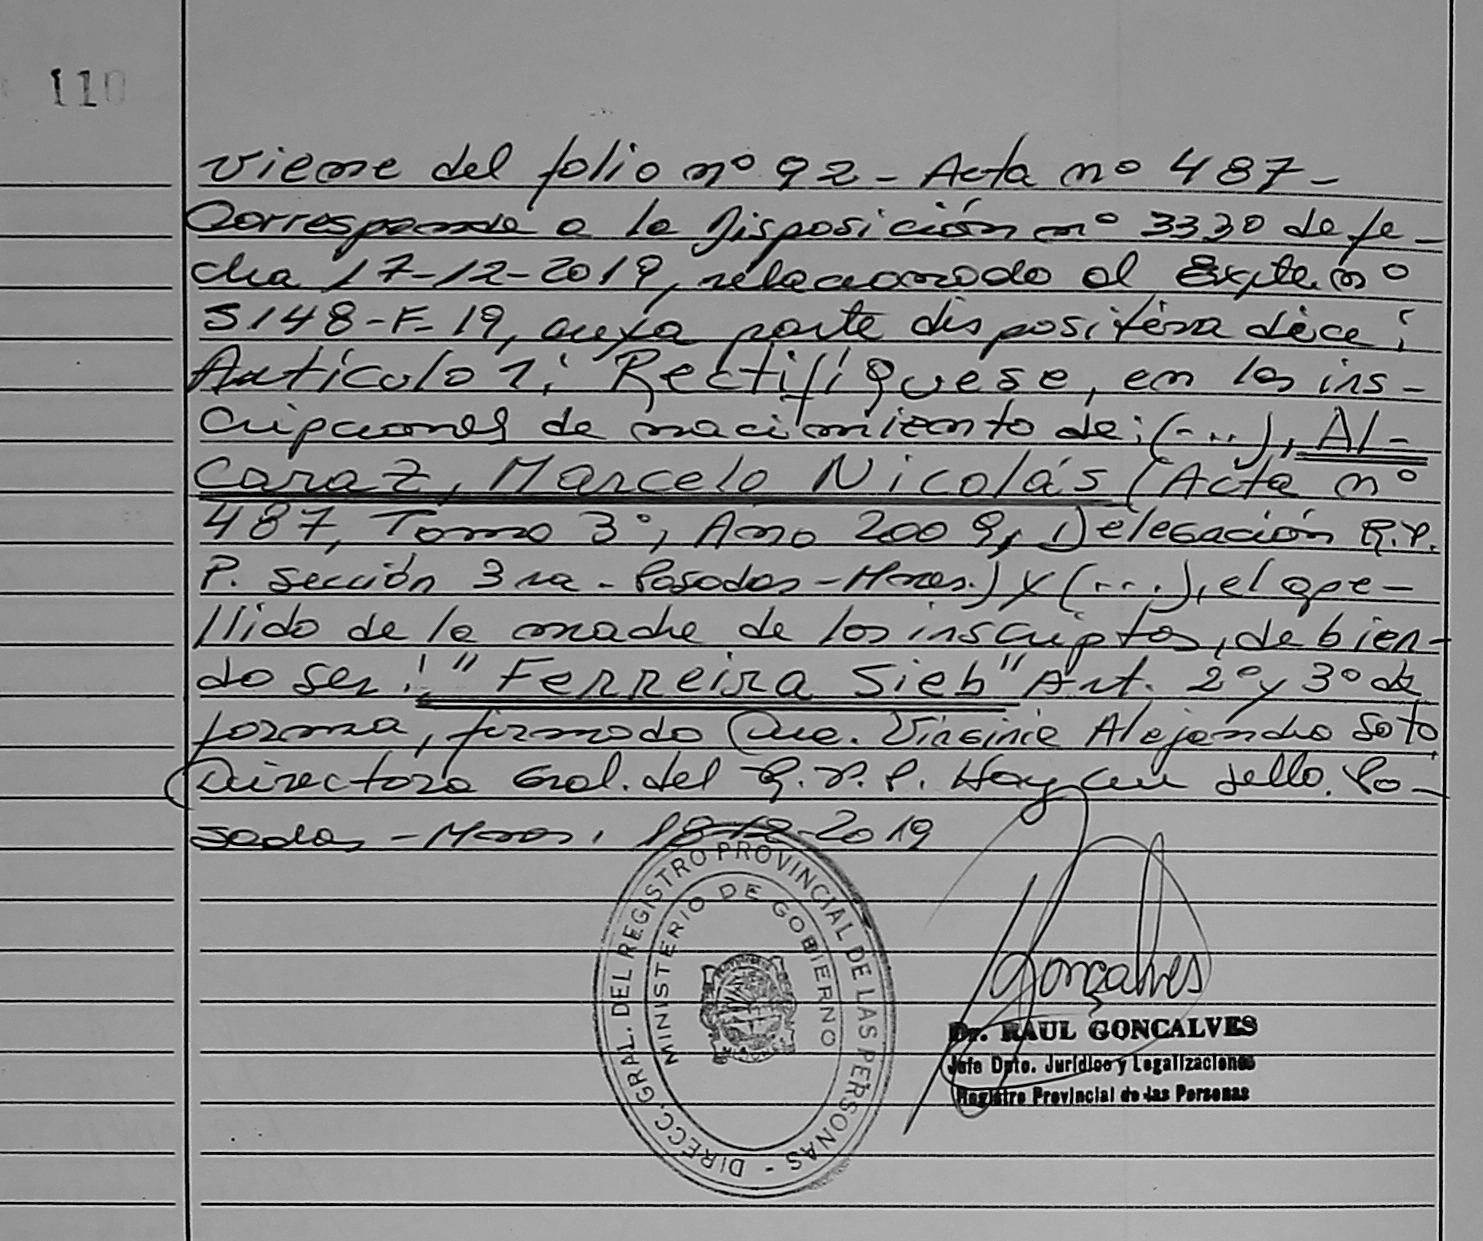 110
Viene del folio nº 92 - Acta nº 487 -
Corresponde a la Disposición nº 3330 de fe-
cha 17-12-2019, relacionado al Expte. nº
5148-F-19, cuya parte dispositiva dice:
Artículo 1: Rectifíquese, en las ins-
cripciones de nacimiento de: (...), Al-
caraz, Marcelo Nicolás (Acta nº
487, Tomo 3º, Año 2009, Delegación R.P.
P. Sección 3ra - Posadas - Mnes.) y (...), el ape-
llido de la madre de los inscriptos, debien-
do ser: "Ferreira Sieb" Art. 2º y 3º de
forma, firmado Virginia Alejandra Soto
Directora Gral. del R.P.P. Hay un sello. Po-
sadas - Mnes, 18-12-2019
DIRECC. GRAL. DEL REGISTRO PROVINCIAL DE LAS PERSONAS -
MINISTERIO DE GOBIERNO
Gonçalves
Dr. RAUL GONCALVES
Jefe Dpto. Jurídico y Legalizaciones
Registro Provincial de las Personas